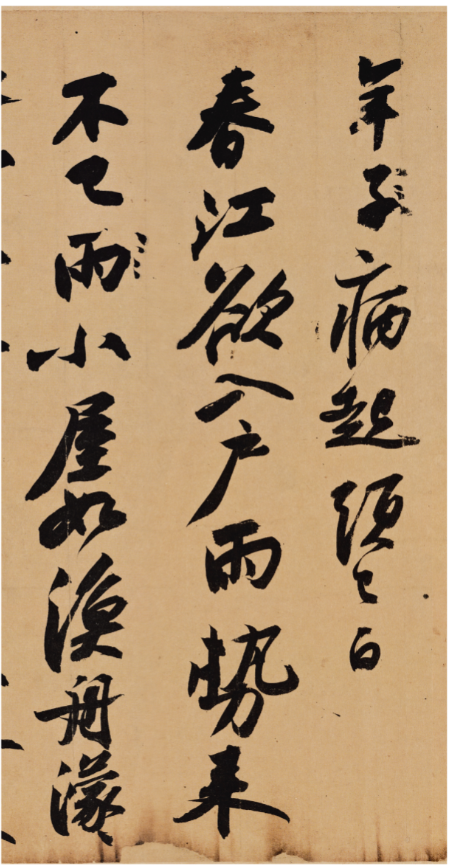 年子病起須已白
春江欲入戶雨勢來
不已雨小屋如漁舟濛〻